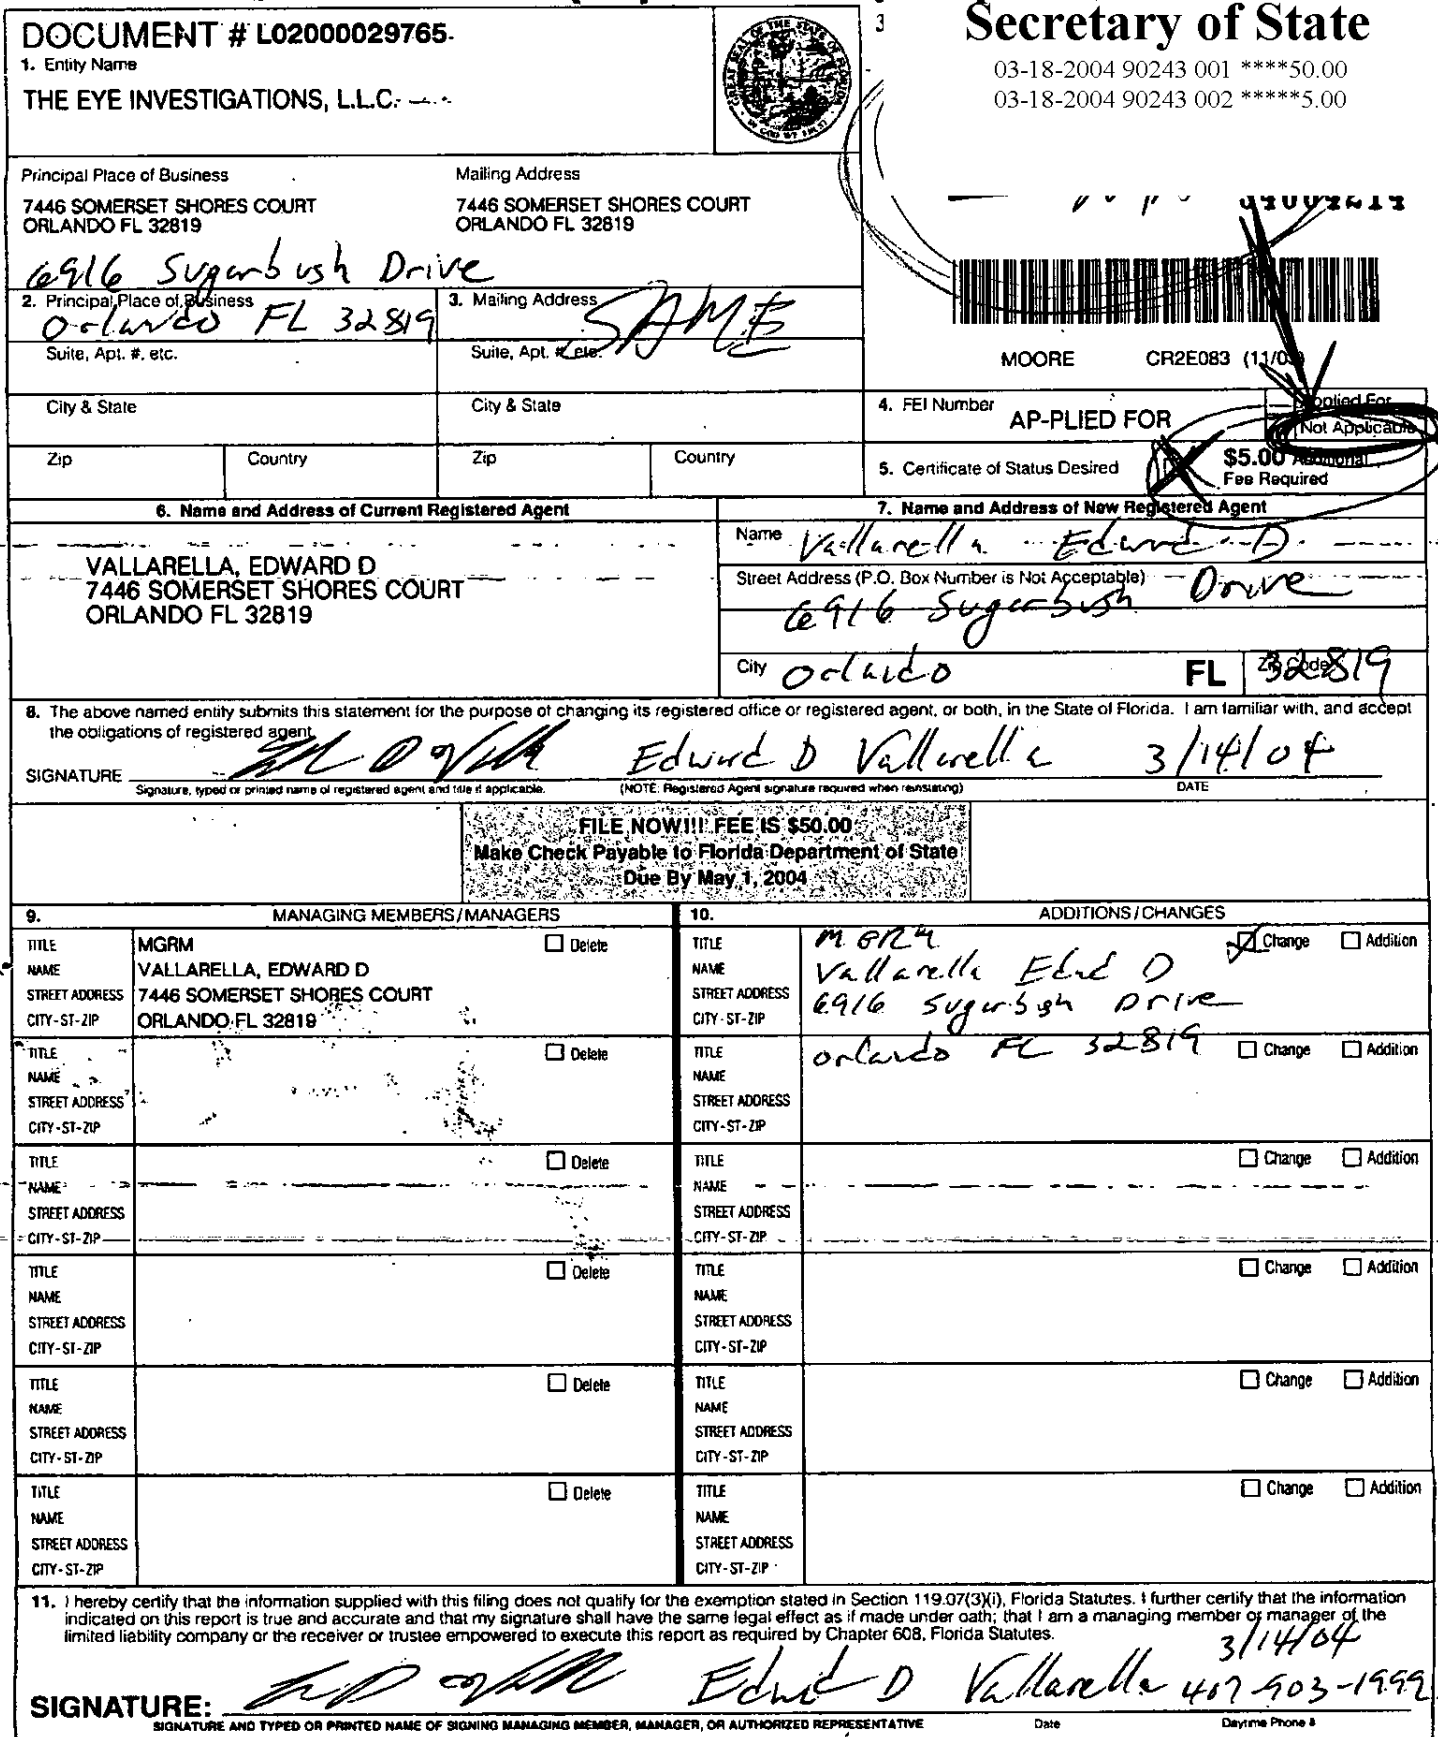 Secretary of State
03-18-2004 90243 001 ****50.00
03-18-2004 90243 002 *****5.00
DOCUMENT # L02000029765
1. Entity Name
THE EYE INVESTIGATIONS, L.L.C.
Principal Place of Business
7446 SOMERSET SHORES COURT
ORLANDO FL 32819
Mailing Address
7446 SOMERSET SHORES COURT
ORLANDO FL 32819
6916 Sugarbush Drive
2. Principal Place of Business
Orlando FL 32819
3. Mailing Address
SAME
Suite, Apt. #, etc.
Suite, Apt. #, etc.
MOORE CR2E083 (11/03)
City & State
City & State
4. FEI Number
AP-PLIED FOR
Applied For
Not Applicable
Zip Country
Zip Country
5. Certificate of Status Desired
$5.00 Additional
Fee Required
6. Name and Address of Current Registered Agent
VALLARELLA, EDWARD D
7446 SOMERSET SHORES COURT
ORLANDO FL 32819
7. Name and Address of New Registered Agent
Name Vallarella Edward D
Street Address (P.O. Box Number is Not Acceptable)
6916 Sugarbush Drive
City Orlando FL Zip Code 32819
8. The above named entity submits this statement for the purpose of changing its registered office or registered agent, or both, in the State of Florida. I am familiar with, and accept
the obligations of registered agent.
SIGNATURE Edward D Vallarella 3/14/04
Signature, typed or printed name of registered agent and title if applicable. (NOTE: Registered Agent signature required when reinstating) DATE
FILE NOW!!! FEE IS $50.00
Make Check Payable to Florida Department of State
Due By May 1, 2004
9. MANAGING MEMBERS/MANAGERS
TITLE MGRM Delete
NAME VALLARELLA, EDWARD D
STREET ADDRESS 7446 SOMERSET SHORES COURT
CITY-ST-ZIP ORLANDO FL 32819
TITLE Delete
NAME
STREET ADDRESS
CITY-ST-ZIP
TITLE Delete
NAME
STREET ADDRESS
CITY-ST-ZIP
TITLE Delete
NAME
STREET ADDRESS
CITY-ST-ZIP
TITLE Delete
NAME
STREET ADDRESS
CITY-ST-ZIP
TITLE Delete
NAME
STREET ADDRESS
CITY-ST-ZIP
10. ADDITIONS/CHANGES
TITLE MGRM Change Addition
NAME Vallarella Edwd D
STREET ADDRESS 6916 Sugarbush Drive
CITY-ST-ZIP
Orlando FL 32819
TITLE Change Addition
NAME
STREET ADDRESS
CITY-ST-ZIP
TITLE Change Addition
NAME
STREET ADDRESS
CITY-ST-ZIP
TITLE Change Addition
NAME
STREET ADDRESS
CITY-ST-ZIP
TITLE Change Addition
NAME
STREET ADDRESS
CITY-ST-ZIP
TITLE Change Addition
NAME
STREET ADDRESS
CITY-ST-ZIP
11. I hereby certify that the information supplied with this filing does not qualify for the exemption stated in Section 119.07(3)(i), Florida Statutes. I further certify that the information
indicated on this report is true and accurate and that my signature shall have the same legal effect as if made under oath; that I am a managing member or manager of the
limited liability company or the receiver or trustee empowered to execute this report as required by Chapter 608, Florida Statutes.
3/14/04
SIGNATURE: Edwd D Vallarella 407-903-1999
SIGNATURE AND TYPED OR PRINTED NAME OF SIGNING MANAGING MEMBER, MANAGER, OR AUTHORIZED REPRESENTATIVE Date Daytime Phone #